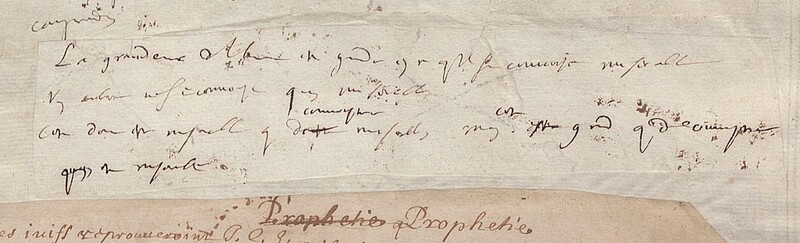 La grandeur de l'homme est grande en ce qu'il se connoist miserable
Un arbre ne se connoist pas miserable
C'est donc estre miserable que de connoistre miserable mais c'est estre grand que de connoistre
qu'on est miserable
Prophetie Prophetie